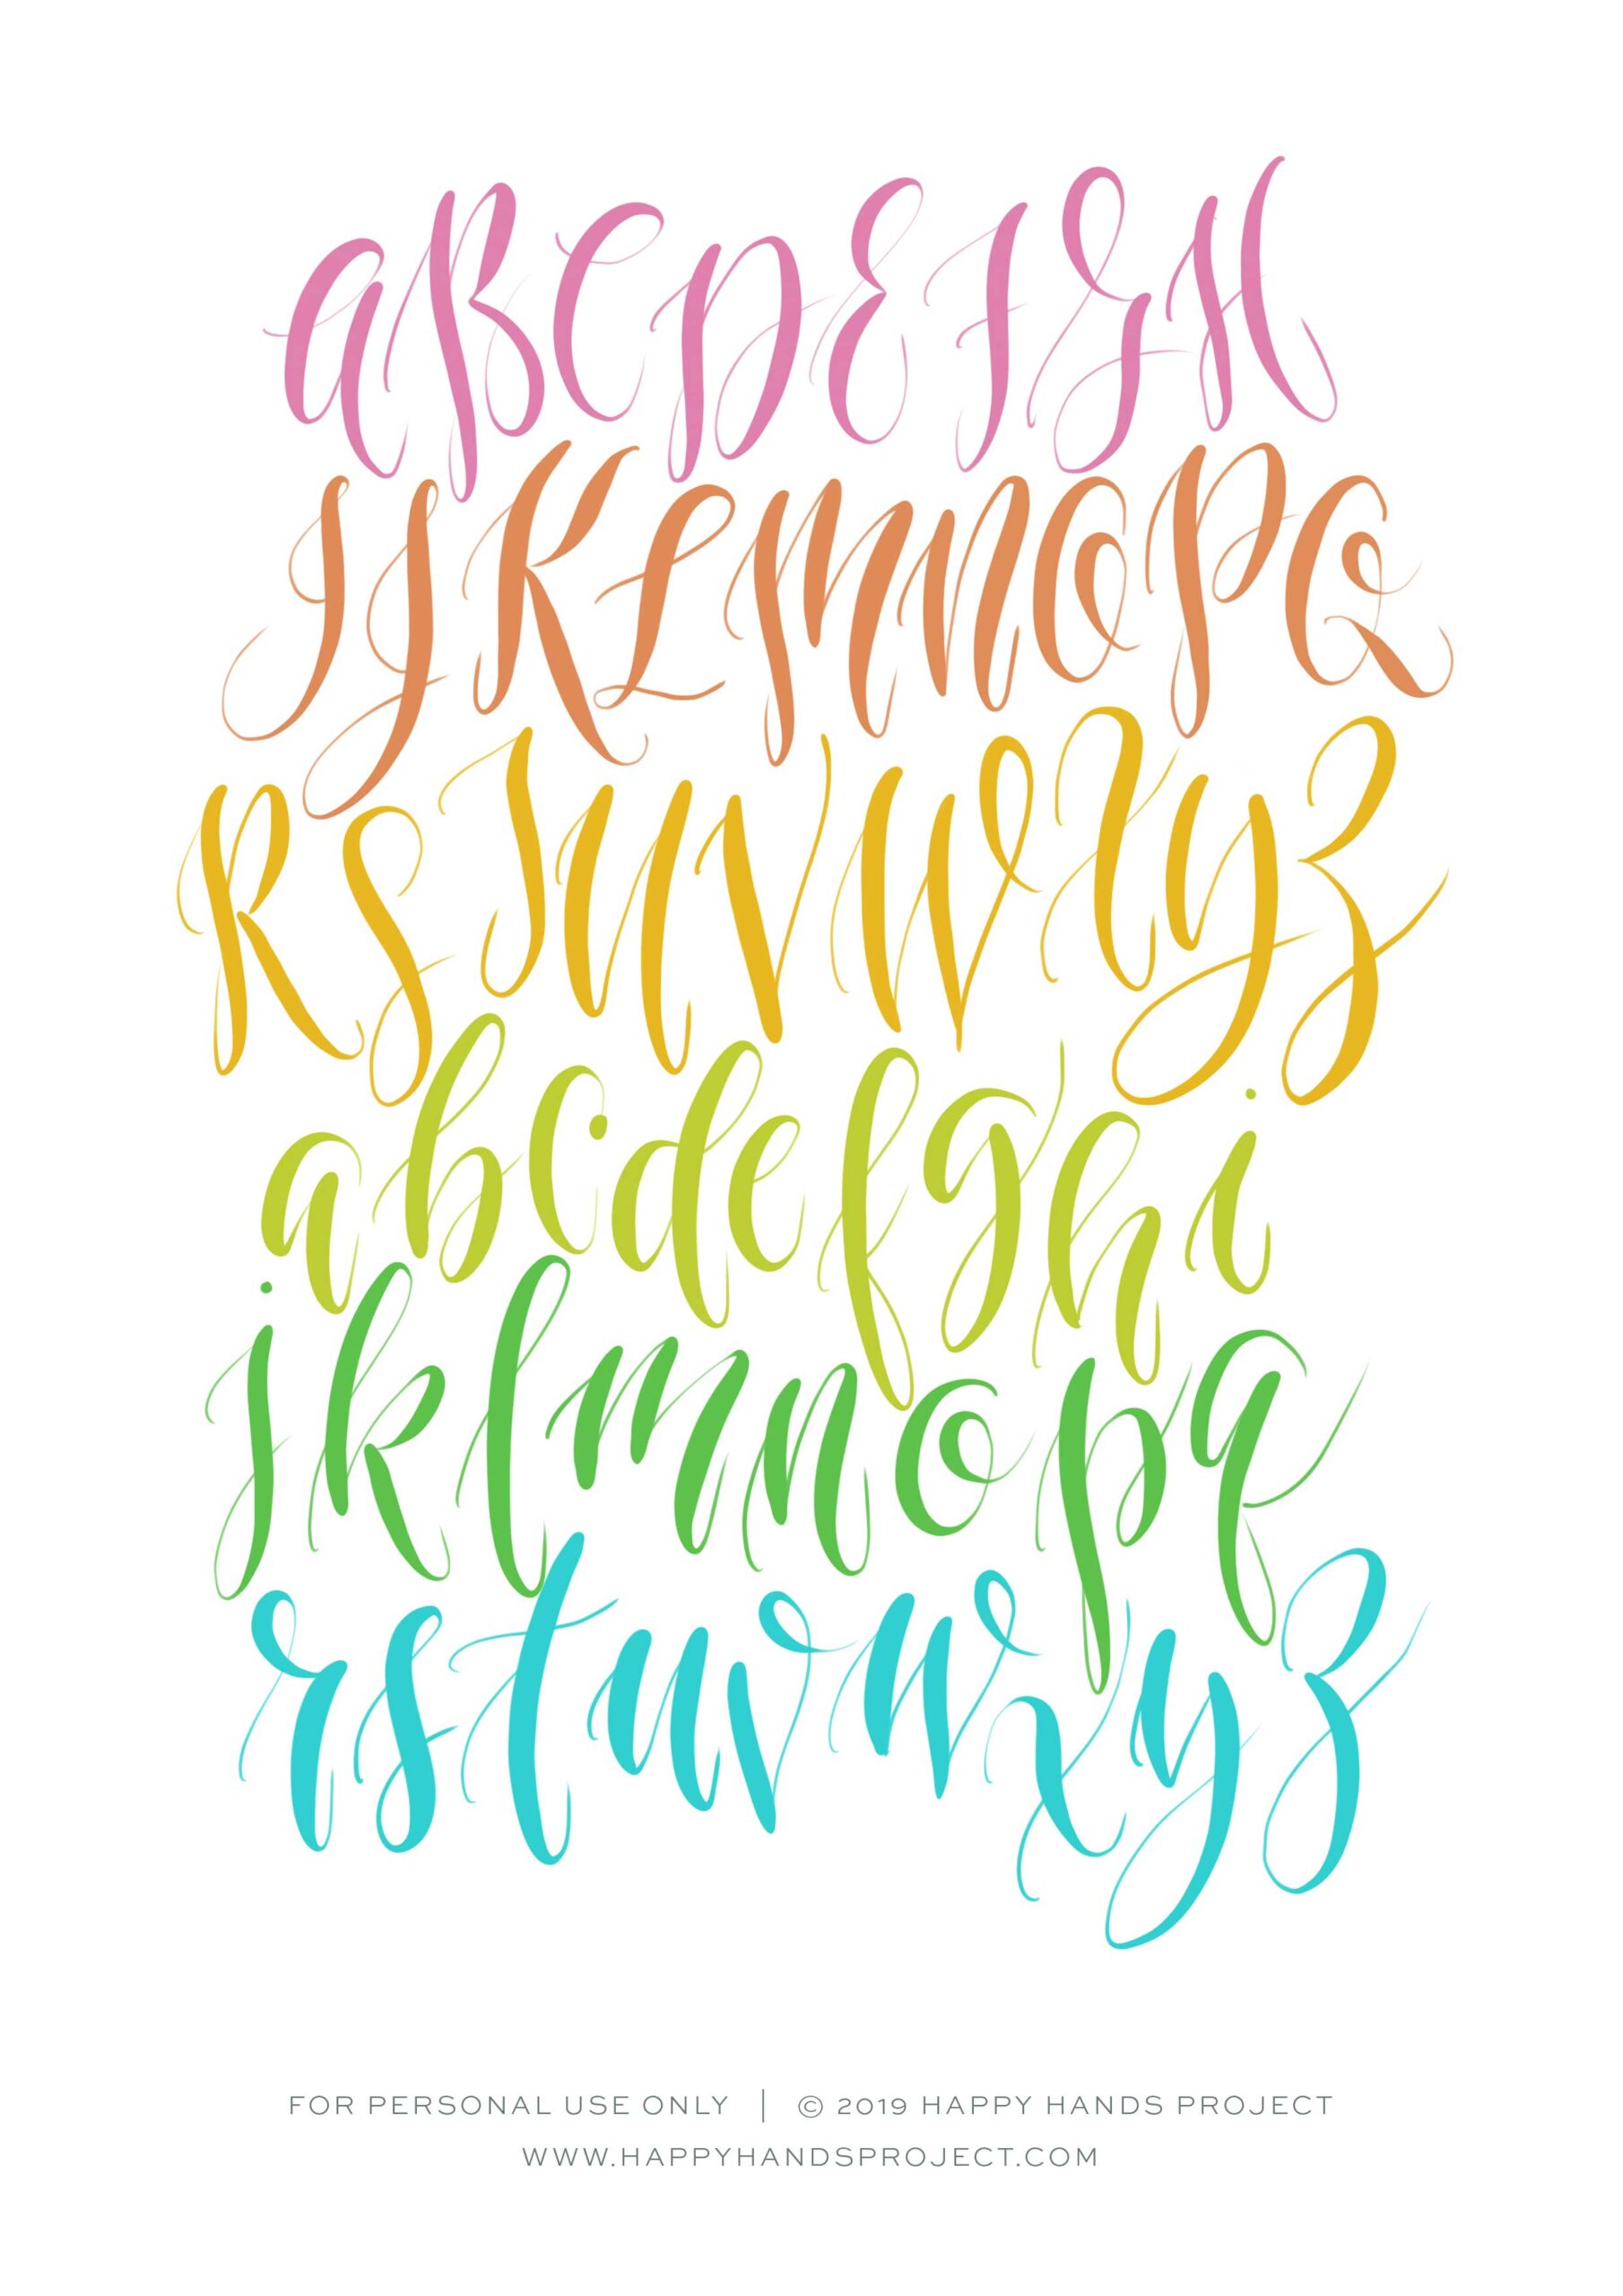 A B C D E F G H
I J K L M N O P Q
R S T U V W X Y Z
a b c d e f g h i
j k l m n o p q
r s t u v w x y z
FOR PERSONAL USE ONLY | © 2019 HAPPY HANDS PROJECT
WWW.HAPPYHANDSPROJECT.COM